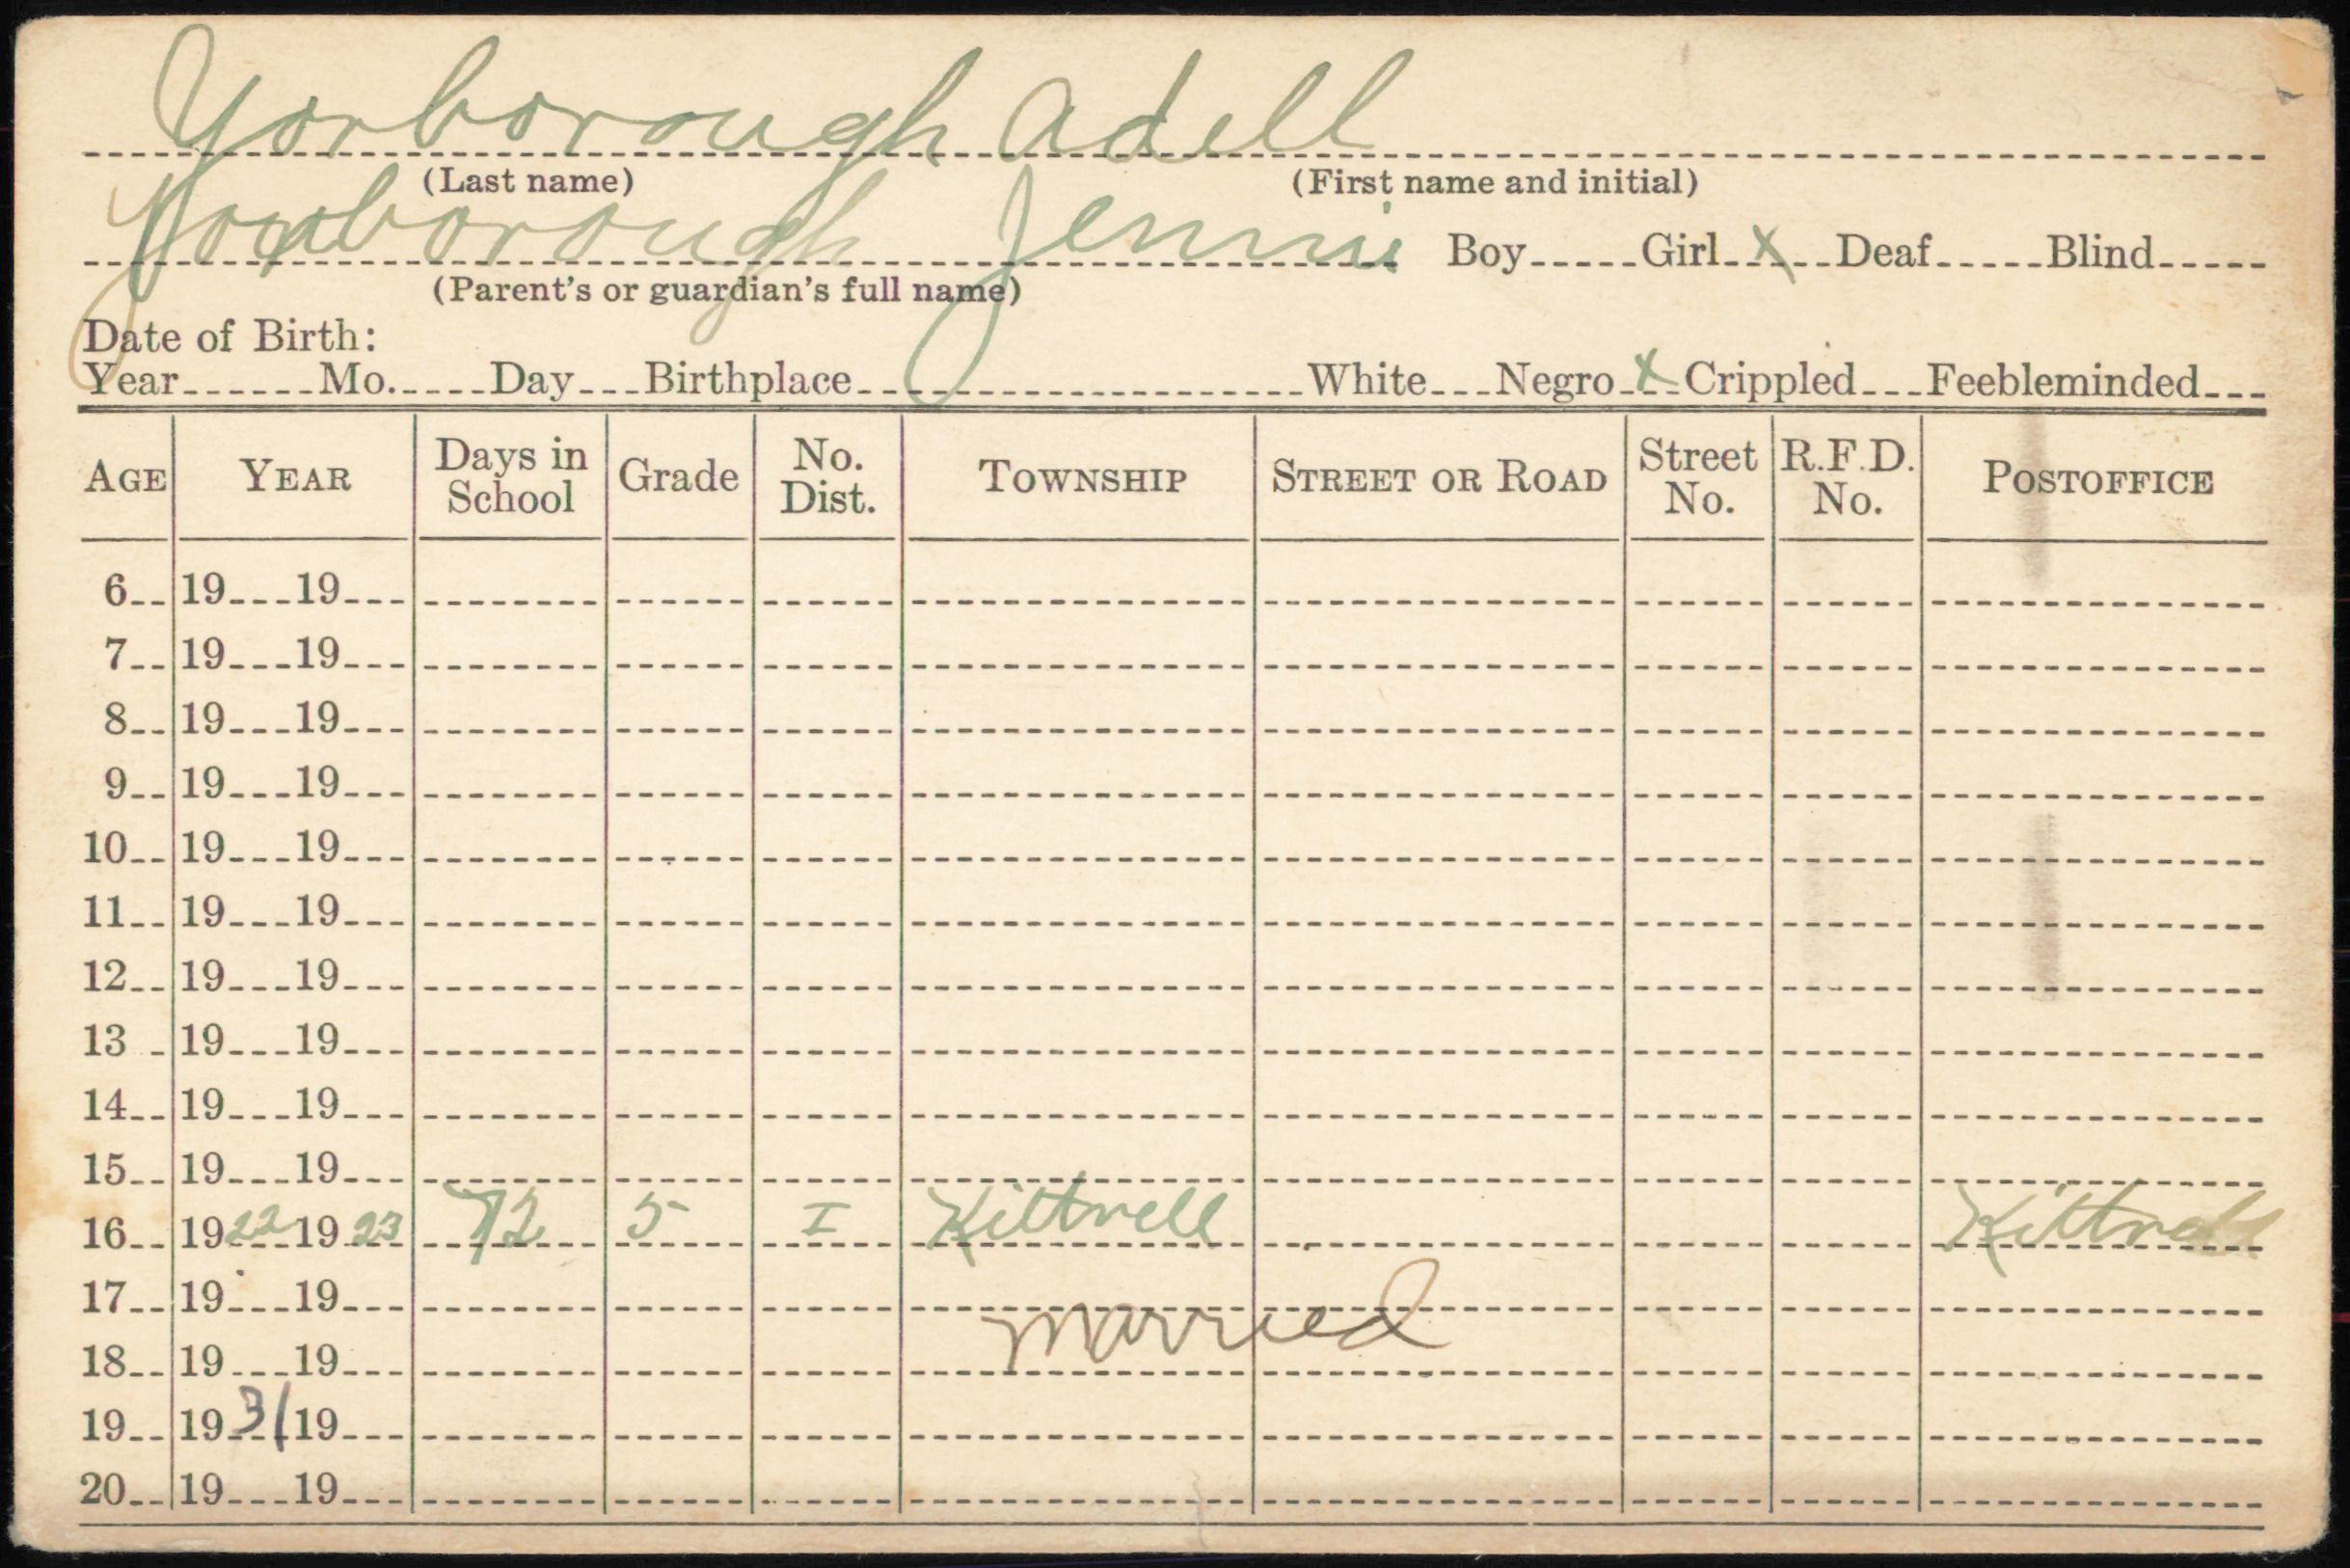 Yorborough Adell
(Last name) (First name and initial)
Yorborough Jennie Boy Girl X Deaf Blind
(Parent's or guardian's full name)
Date of Birth:
Year Mo. Day Birthplace White Negro X Crippled Feebleminded
AGE YEAR Days in School Grade No. Dist. TOWNSHIP STREET OR ROAD Street No. R.F.D. No. POSTOFFICE
6 19 19
7 19 19
8 19 19
9 19 19
10 19 19
11 19 19
12 19 19
13 19 19
14 19 19
15 19 19
16 1922 1923 72 5 I Kittrell Kittrell
17 19 19
married
18 19 19
19 1931 19
20 19 19